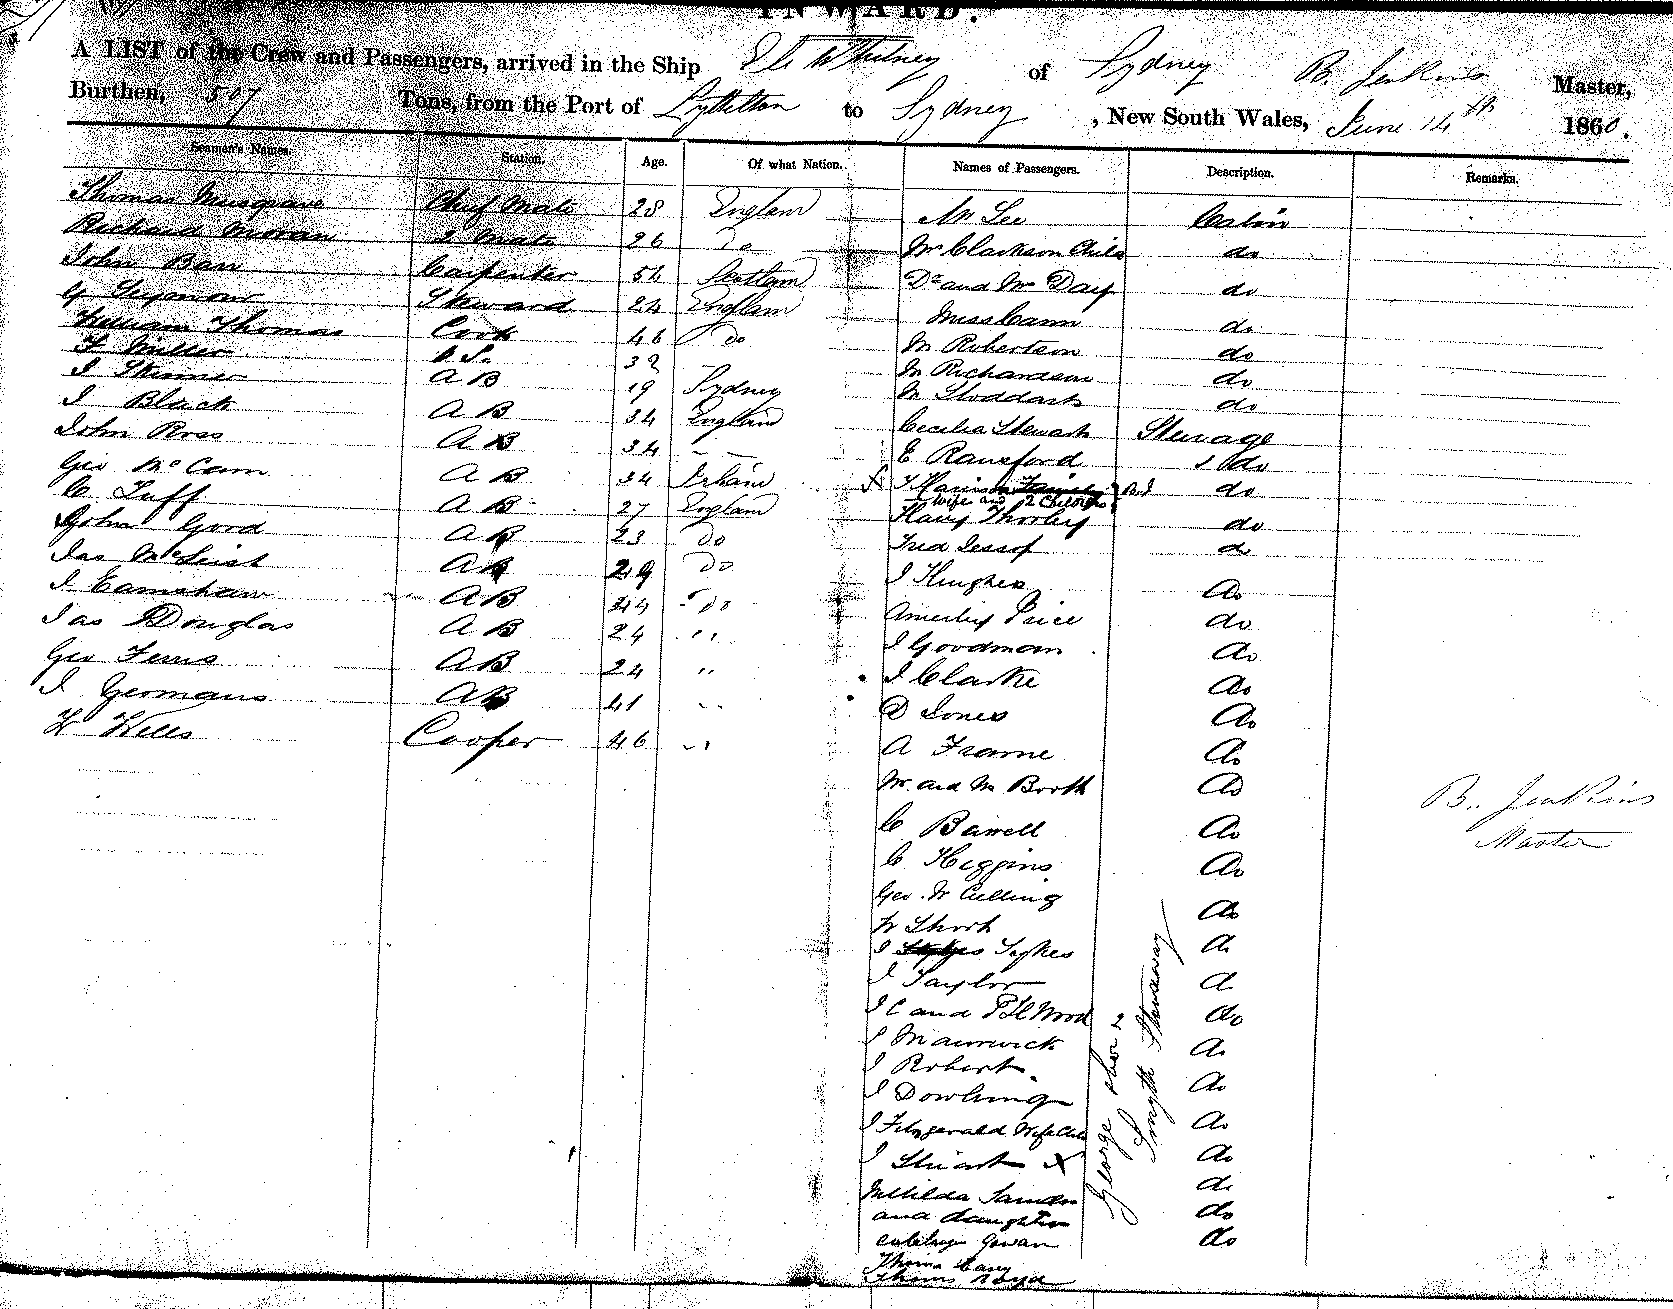 INWARD.
A LIST of the Crew and Passengers, arrived in the Ship Whitney of Sydney B. Jenkins Master,
Burthen, 507 Tons, from the Port of Lyttelton to Sydney, New South Wales, June 14th 1860.
Seamen's Names. Station. Age. Of what Nation. Names of Passengers. Description. Remarks.
Thomas Musgrave Chief Mate 28 England
Richard Moran 2 Mate 26 Do
John Barr Carpenter 54 Scotland
G Seymour Steward 24 England
William Thomas Cook 46 do
F Miller O.S. 32
J Skinner AB 19 Sydney
J Black AB 34 England
John Ross AB 34 - -
Geo McCann AB 34 Ireland
C Tuff AB 27 England
John Good AB 23 Do
Jas McLeish AB 29 Do
J Earnshaw AB 24 Do
Jas Douglas AB 24 "
Geo Ferris AB 24 "
J Germans AB 41 "
W Wells Cooper 46 "
Mr Lee Cabin
Mr Clarkson Child do
Dr and Mrs Day do
Miss Cann do
Mr Robertson do
Mr Richardson do
Mr Stoddart do
Cecilia Stewart Steerage
E Ransford do
X J Harrison Family do
Wife and 2 Children
Harry Thorley do
Fred Jessop do
J Hughes Do
Price do
J Goodman Do
J Clarke Do
D Jones Do
A Frame Do
Mr and Mrs Booth Do
C Barrell Do
C Higgins Do
Geo. W Culling Do
W Short Do
J Sykes Do
J Taylor Do
J C and Wood do
J Do
J Robert. Do
J Dowling Do
J Fitzgerald Wife Child Do
J Stuart X Do
Matilda do
and daughter do
Gowan do
Thomas Carey
Thomas Boyd
George
Smyth Stowaway
B. Jenkins
Master